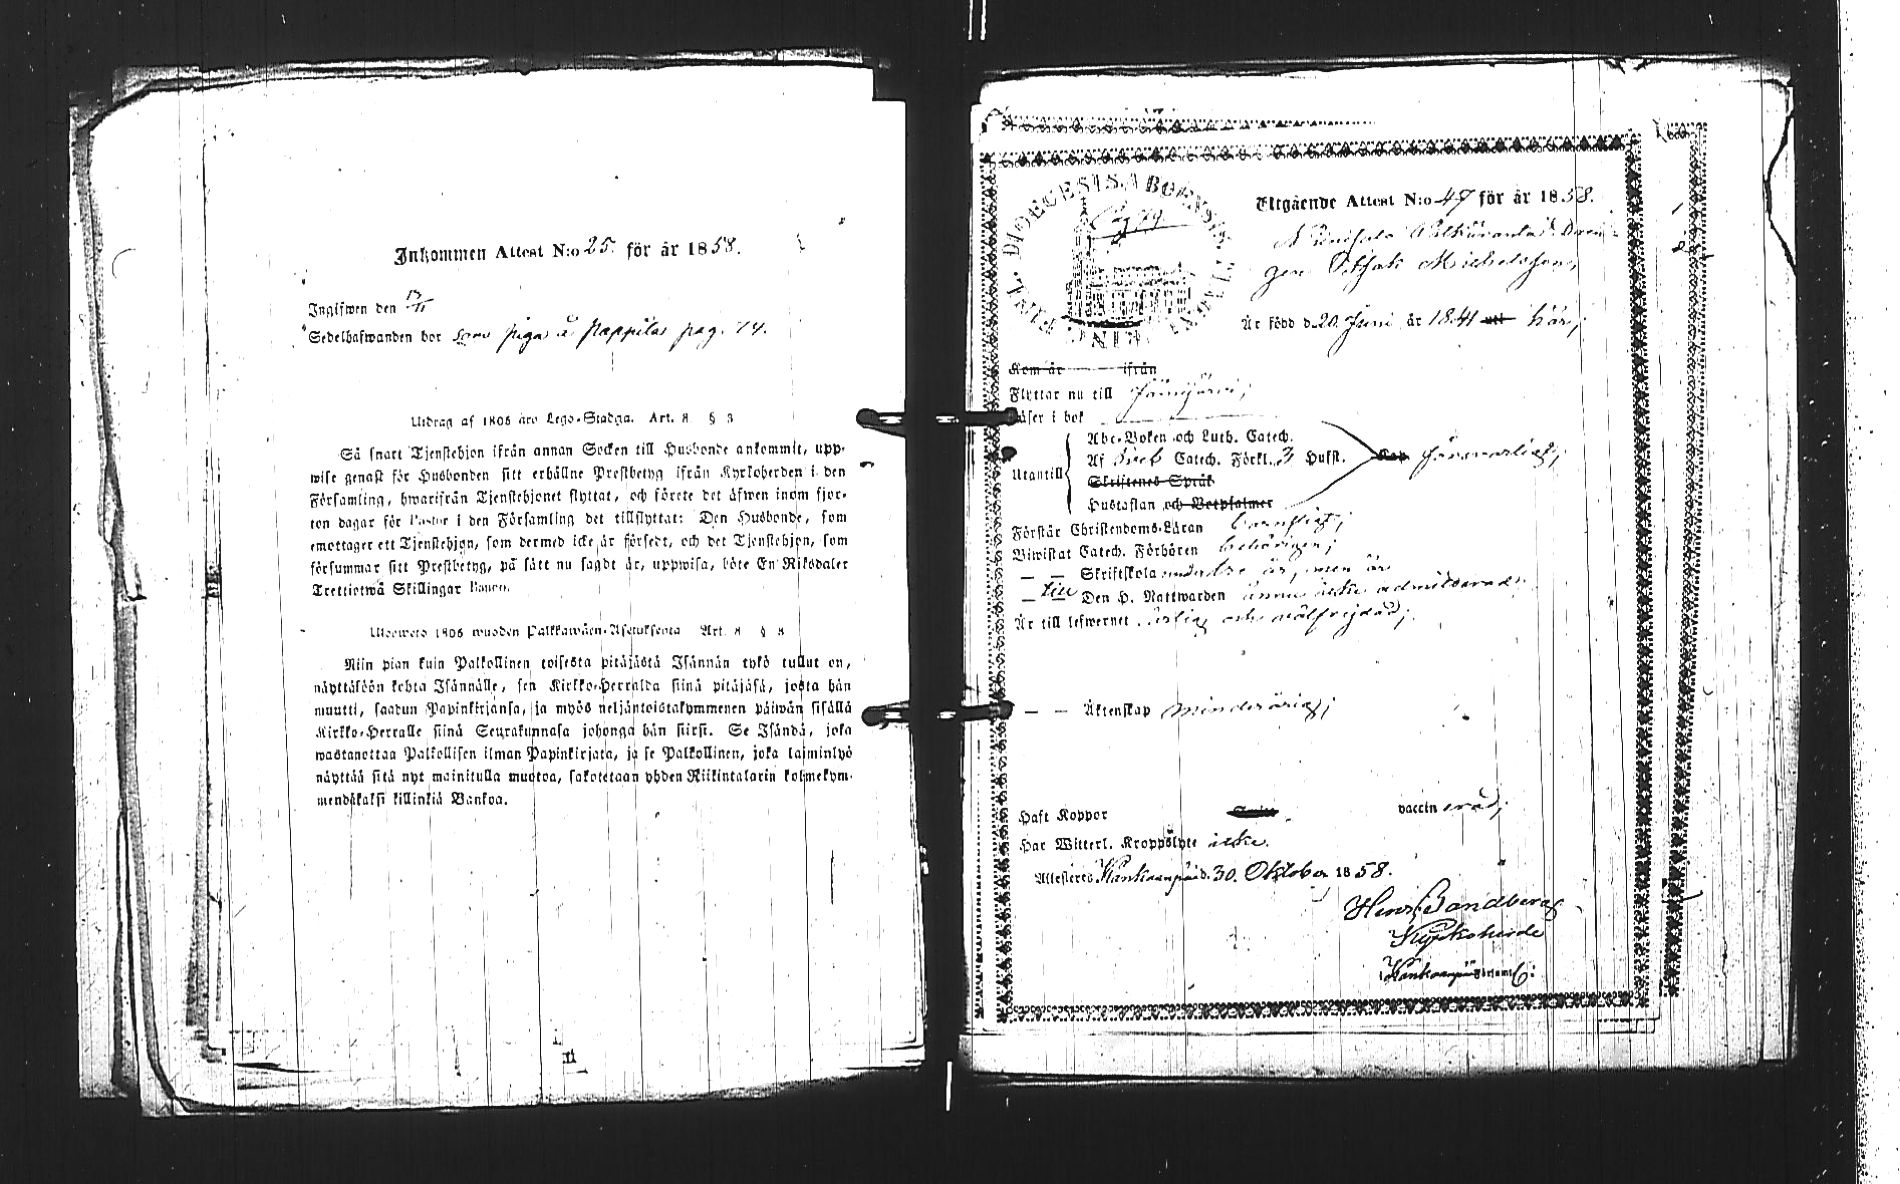 Inkommen Attest N:o 25. för år 1858.
Ingifwen den 13/11
Sedelhafwanden bor som piga å Pappilas pag. 74.
Utdrag af 1805 års Lego-Stadga. Art. 8 § 3
Så snart Tjenstehjon ifrån annan Socken till Husbonde ankommit, upp-
wise genast för Husbonden sitt erhållne Prestbetyg ifrån Kyrkoherden i den
Församling, hwarifrån Tjenstehjonet flyttat, och förete det äfwen inom fjor-
ton dagar för Pastor i den Församling det tillflyttat: Den Husbonde, som
emottager ett Tjenstehjon, som dermed icke är försedt, och det Tjenstehjon, som
försummar sitt Prestbetyg, på sätt nu sagdt är, uppwisa, böte En Riksdaler
Trettiotwå Skillingar Banco.
Ulosweto 1805 wuoden Palkkawäen-Asetuksesta Art. 8 § 3
Niin pian kuin Palkollinen toisesta pitäjästä Isännän tykö tullut on,
näyttäköön kohta Isännälle, sen Kirkko-Herralda siinä pitäjäsä, josta hän
muutti, saadun Papinkirjansa, ja myös neljäntoistakymmenen päiwän sisällä
Kirkko-Herralle siinä Seurakunnasa johonga hän siirsi. Se Isändä, joka
wastanottaa Palkollisen ilman Papinkirjata, ja se Palkollinen, joka laiminlyö
näyttää sitä nyt mainitulla muotoa, sakotetaan yhden Riikintalarin kolmekym-
mendäkaksi killinkiä Bankoa.
DIOECESIS ABOENSIS
Pag 79
Utgående Attest N:o 47 för år 1858.
Drän-
gen Michelsson,
Är född d. 20 Juni år 1841 här;
Kom år ifrån
Flyttar nu till Jämijärvi;
Läser i bok
Utantill
Abc-Boken och Luth. Catech.
Af Catech. Förkl. 3 Hufst.
Skriftenes Språk
Hustaflan och Botpsalmer
försvarligt;
Förstår Christendoms-Läran barnsligt;
Biwistat Catech. Förhören behörigen;
— — Skriftskola år, men är
— till Den H. Nattwarden ännu icke admitterad;
Är till lefwernet ärlig och wälfrejdad;
— — Äktenskap minderårig;
Haft Koppor vaccinerad;
Har Witterl. Kroppslyte icke.
Attesteras Kankaanpää d. 30. Oktober 1858.
Henr. Sandberg
Kyrkoherde
Kankaanpää